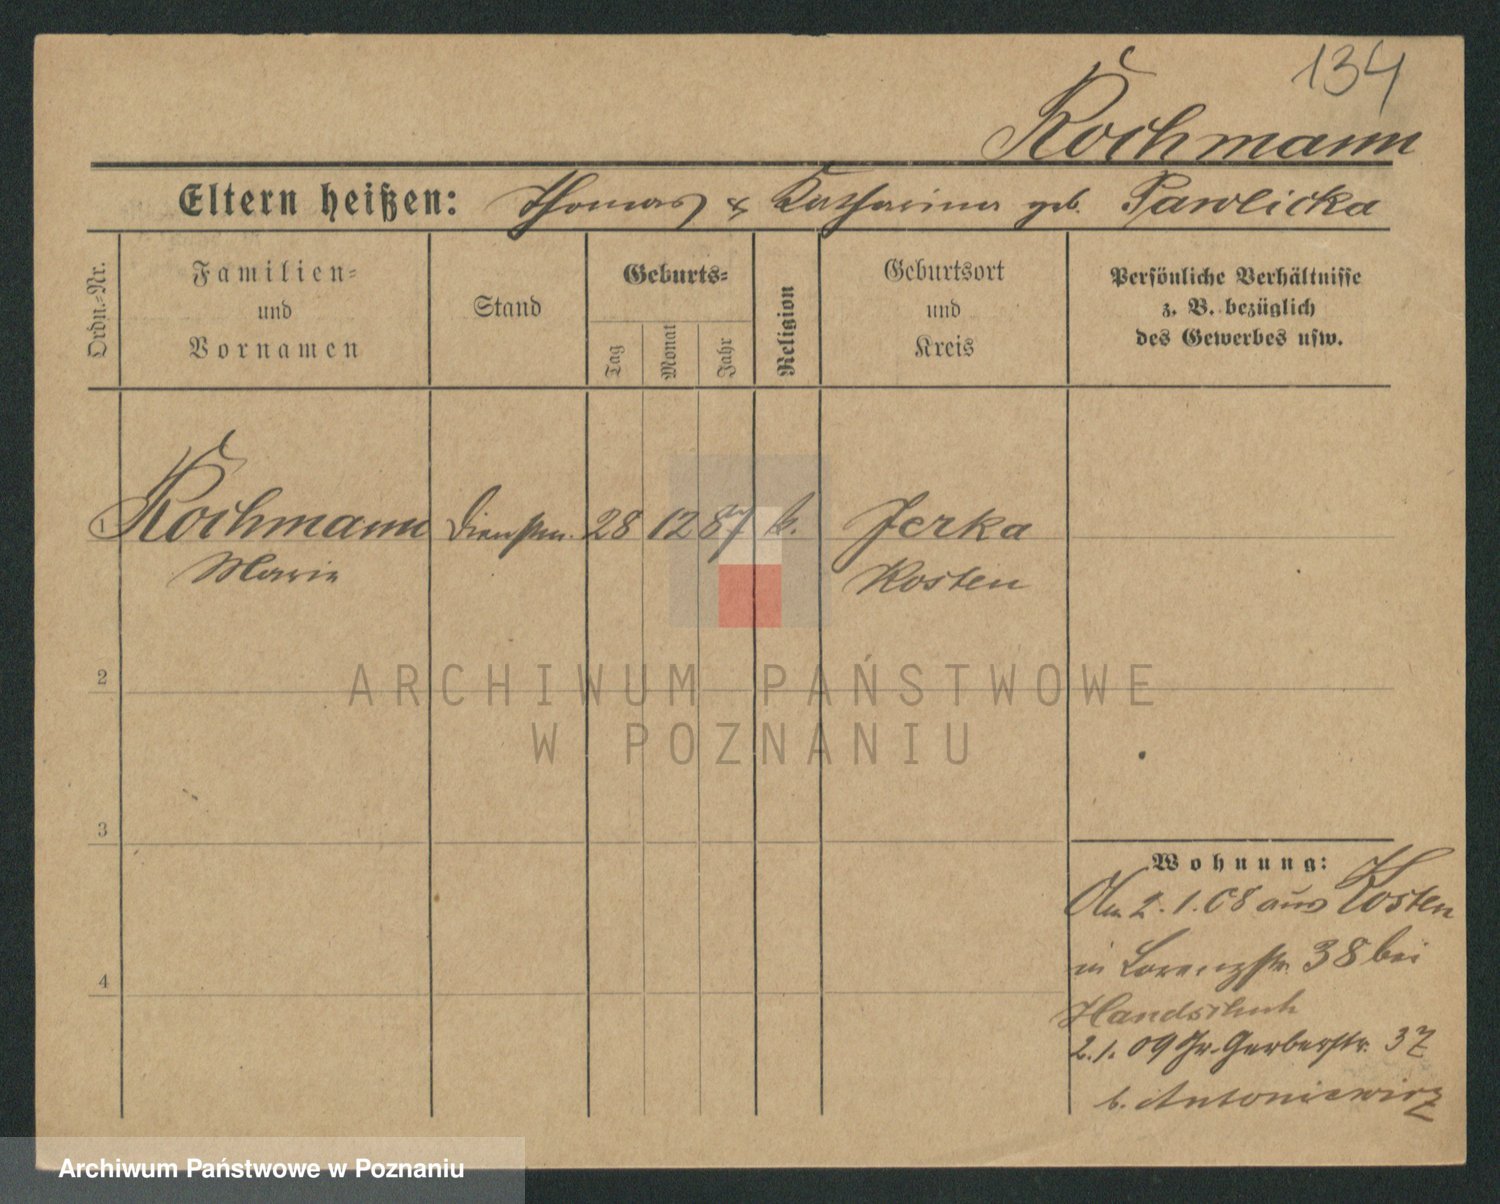 134
Kochmann
Eltern heißen: Thomas & Katharina geb. Pawlicka
Ordn.-Nr.
Familien-
und
Vornamen
Stand
Geburts-
Tag
Monat
Jahr
Religion
Geburtsort
und
Kreis
Persönliche Verhältnisse
z. B. bezüglich
des Gewerbes usw.
1 Kochmann Dienstm. 28 12 87 k. Jerka
Marie Kosten
2
3
4
Wohnung:
2.1.08 aus Kosten
in Lorenzstr. 38 bei
Handschuh
2.1.09 Gr. Gerberstr. 37
b. Antoniewicz
ARCHIWUM PAŃSTWOWE
W POZNANIU
Archiwum Państwowe w Poznaniu